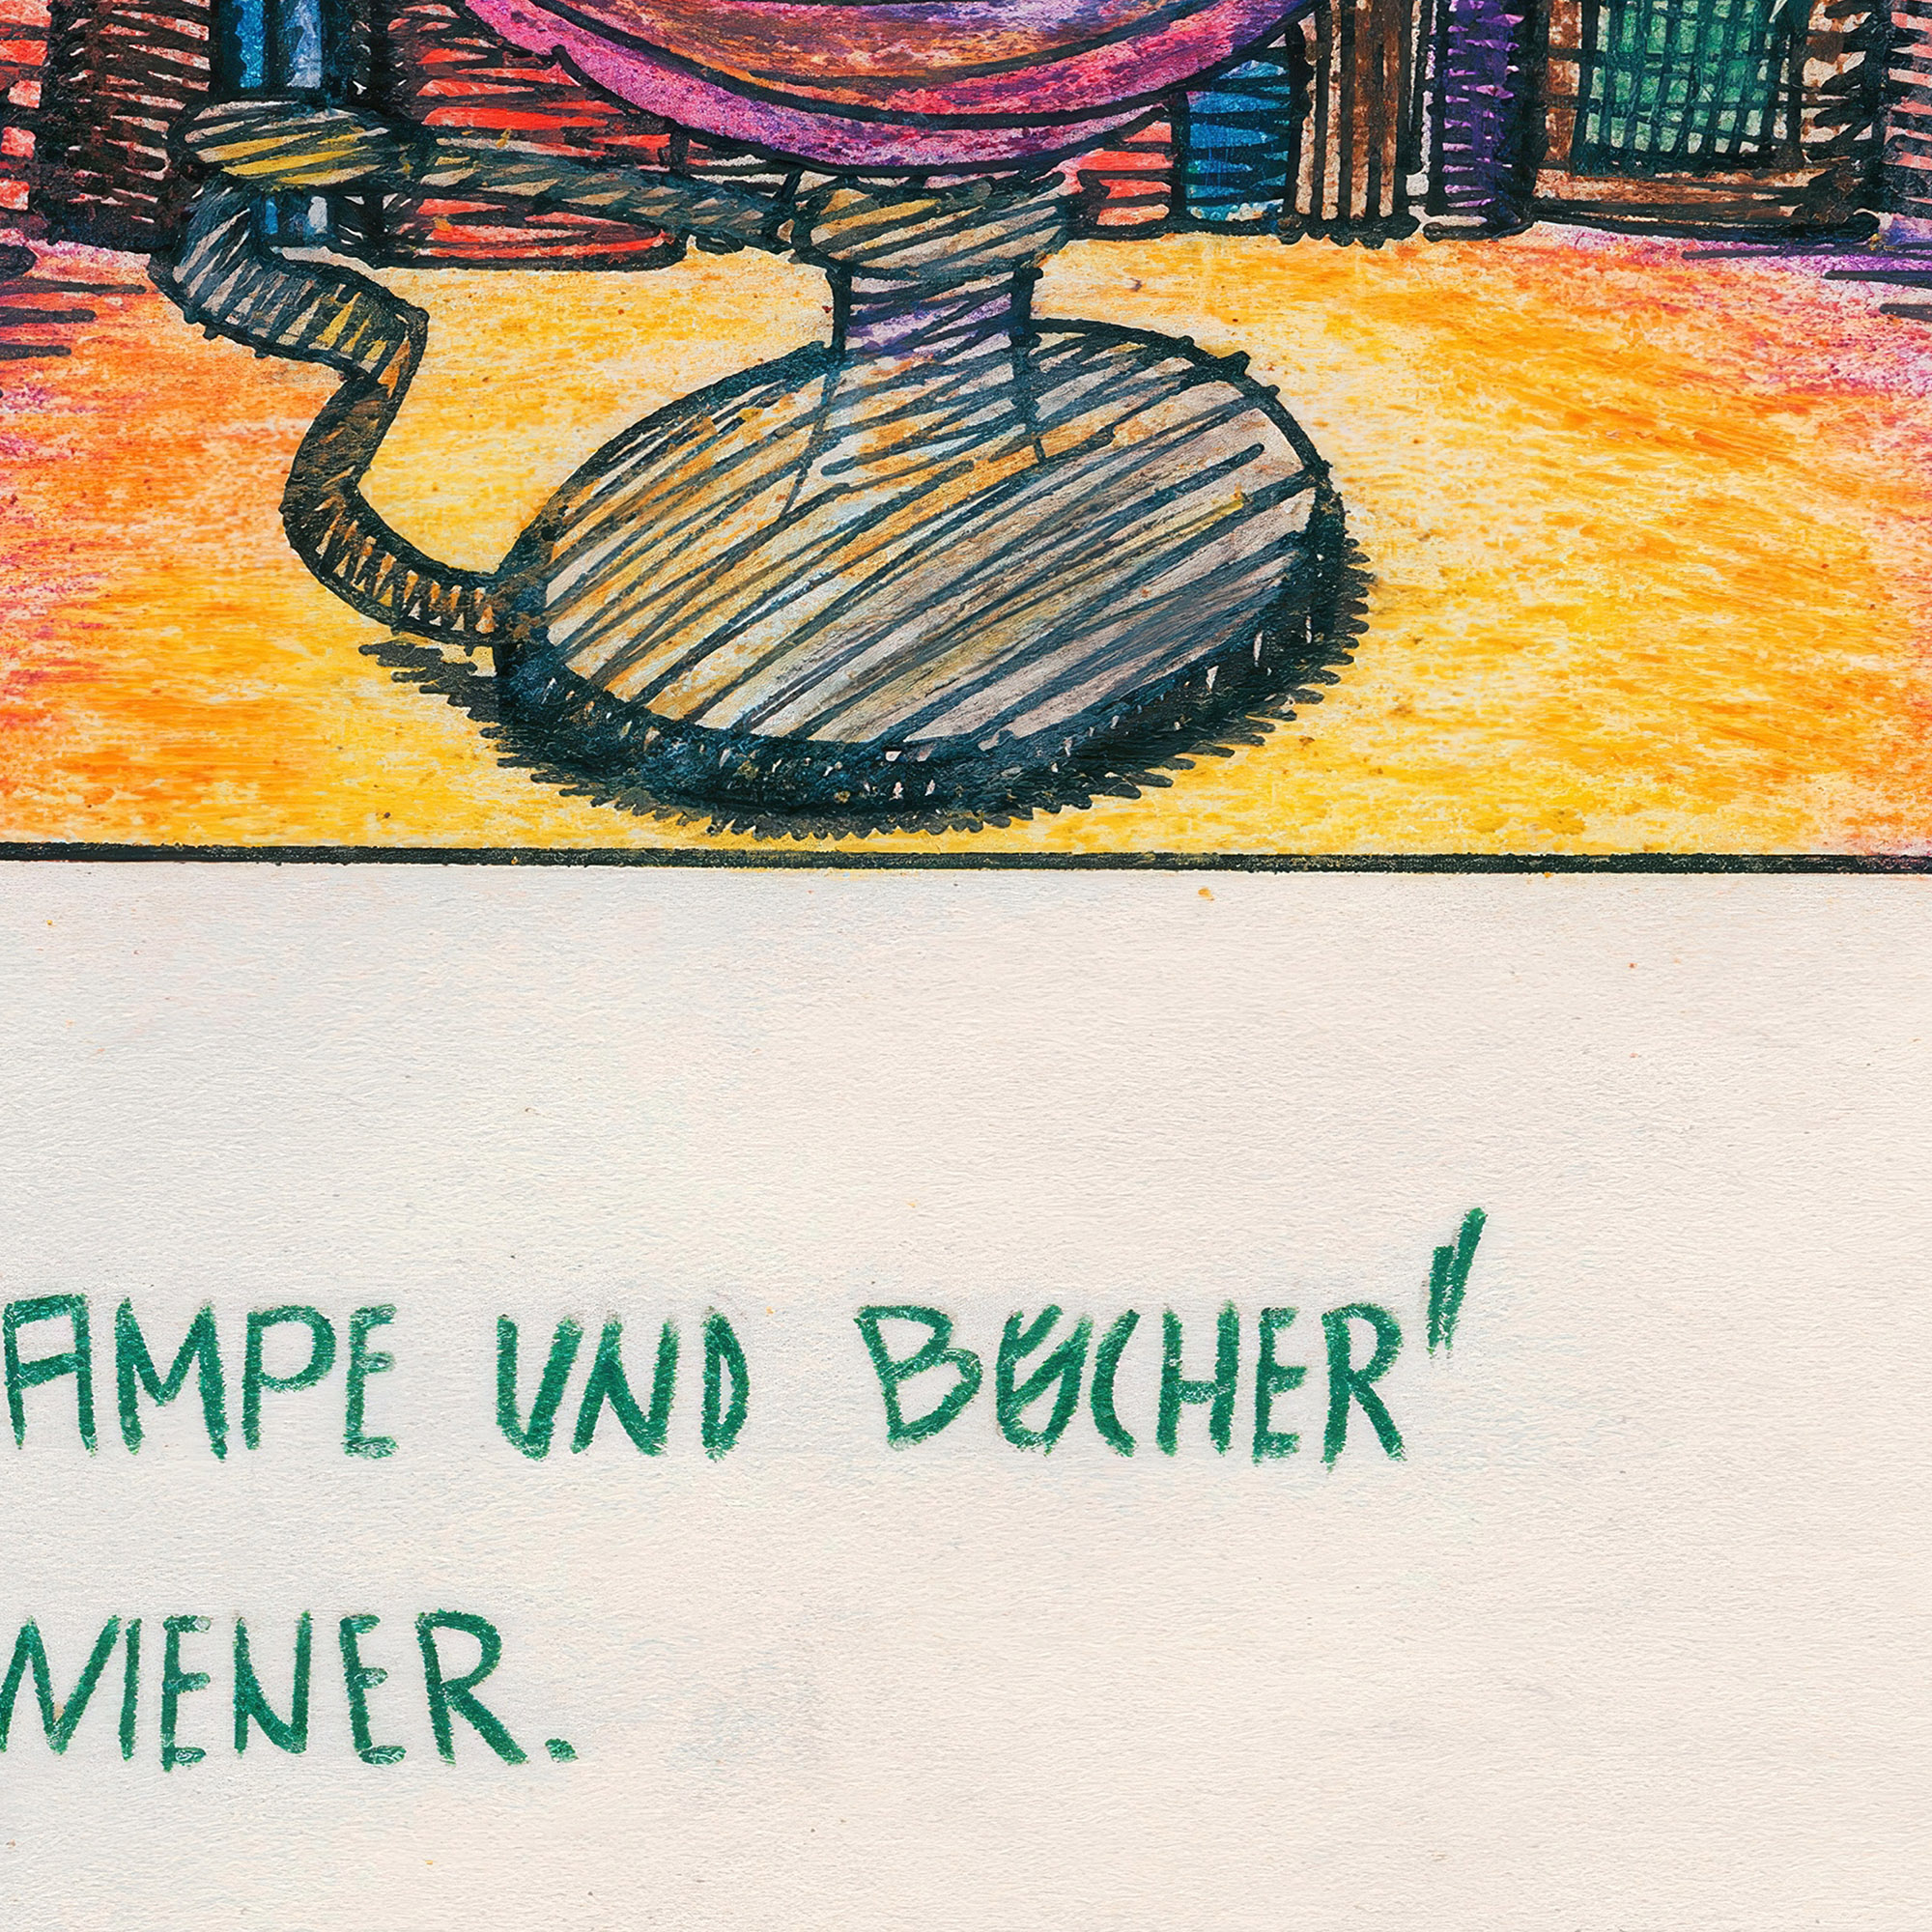 AMPE UND BÜCHER"
WIENER.